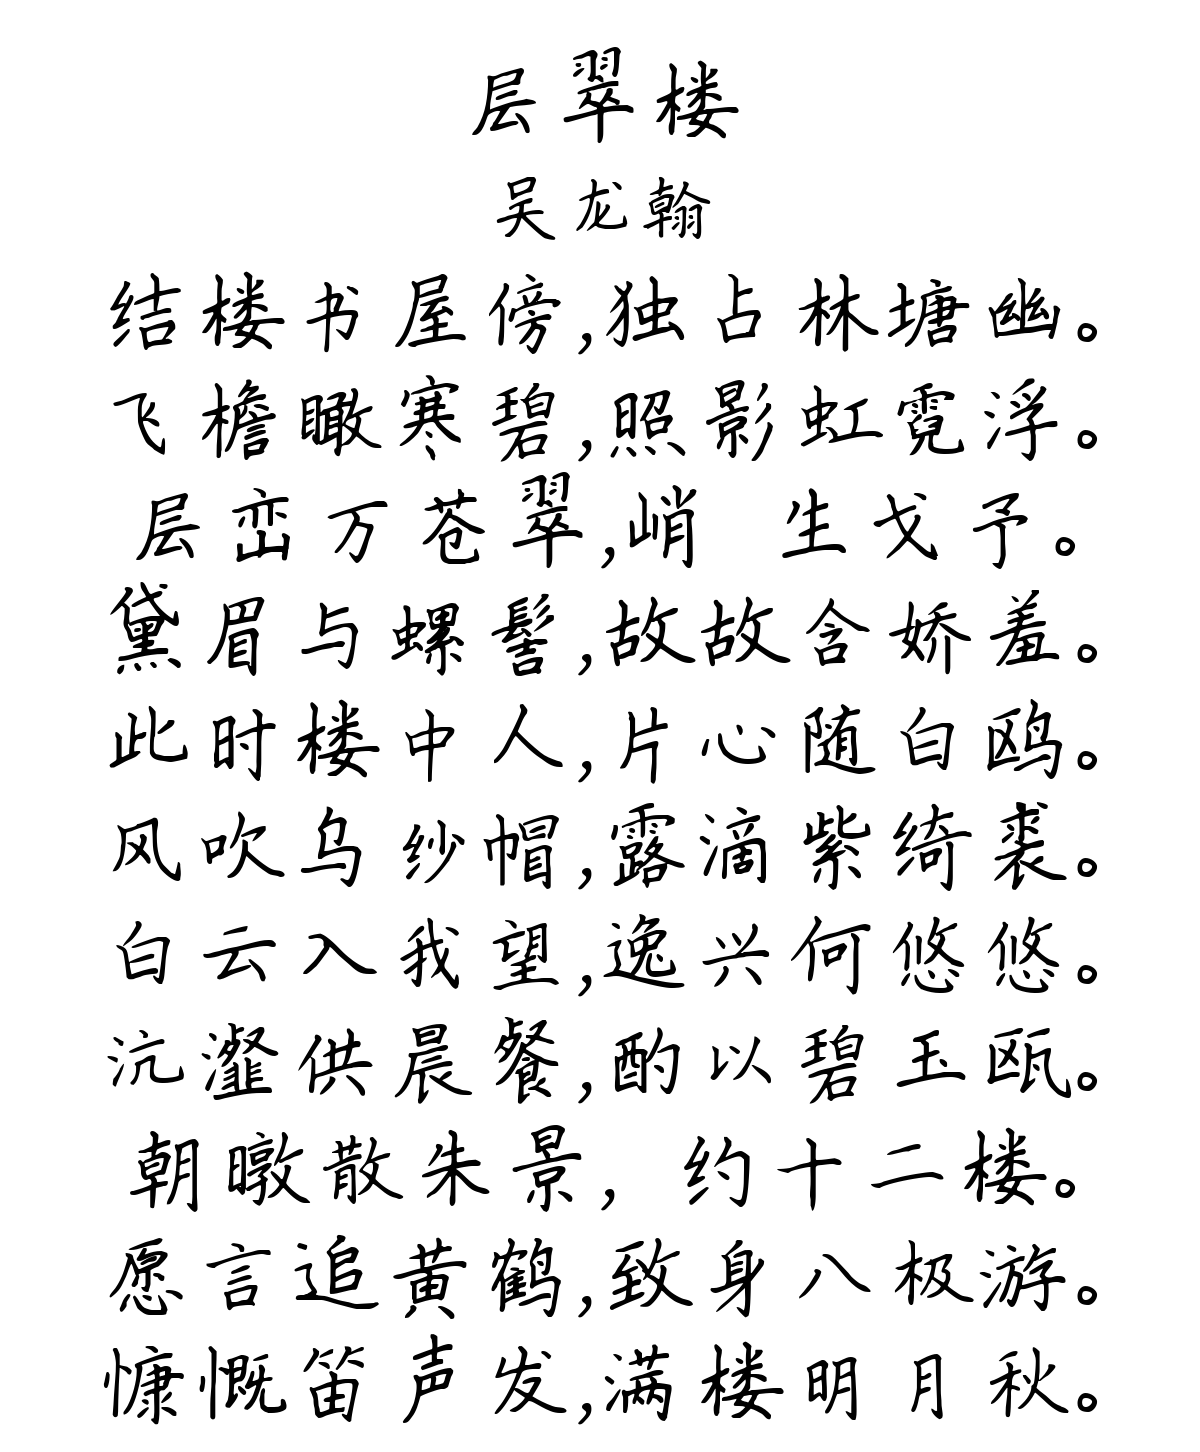 层翠楼
吴龙翰
结楼书屋傍,独占林塘幽。
飞檐瞰寒碧,照影虹霓浮。
层峦万苍翠,峭 生戈予。
黛眉与螺髻,故故含娇羞。
此时楼中人,片心随白鸥。
风吹乌纱帽,露滴紫绮裘。
白云入我望,逸兴何悠悠。
沆瀣供晨餐,酌以碧玉瓯。
朝暾散朱景, 约十二楼。
愿言追黄鹤,致身八极游。
慷慨笛声发,满楼明月秋。